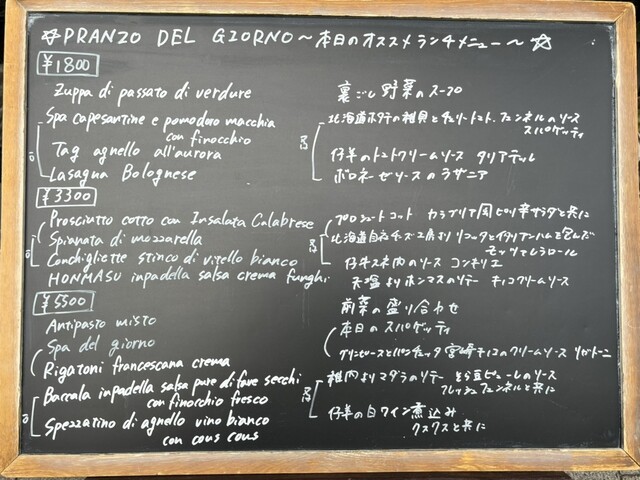 ☆PRANZO DEL GIORNO～本日のオススメランチメニュー～☆
¥1800
Zuppa di passato di verdure 裏ごし野菜のスープ
Spa capesantine e pomodoro macchia 北海道ホタテの稚貝とチェリートマト、フェンネルのソース
con finocchio スパゲッティ
Tag agnello all'aurora 仔羊のトマトクリームソース タリアテッレ
Lasagna Bolognese ボロネーゼソースのラザニア
¥3300
Prosciutto cotto con Insalata Calabrese プロシュートコット カラブリア風ピリ辛サラダと共に
Spianata di mozzarella 北海道 チーズ工房より リコッタとイタリアンハムを包んだ
モッツァレラロール
Conchigliette stinco di vitello bianco 仔牛スネ肉のソース コンキリエ
HONMASU inpadella salsa crema funghi 天塩よりホンマスのソテー キノコクリームソース
¥5500
Antipasto misto 前菜の盛り合わせ
Spa del giorno 本日のスパゲッティ
Rigatoni francescana crema グリンピースとパンチェッタ 宮崎キノコのクリームソース リガトーニ
Baccala inpadella salsa pure di fave secchi 稚内よりマダラのソテー そら豆ピューレのソース
con finocchio fresco フレッシュフェンネルと共に
Spezzatino di agnello vino bianco 仔羊の白ワイン煮込み
con cous cous クスクスと共に